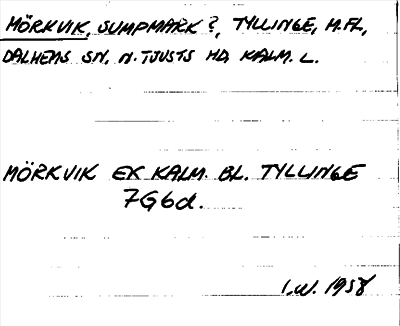 MÖRKVIK, SUMPMARK?, TYLLINGE, M.FL,
DALHEMS SN, N. TJUSTS HD, KALM. L.
MÖRKVIK EK KALM. BL. TYLLINGE
7G6d.
I.W. 1958